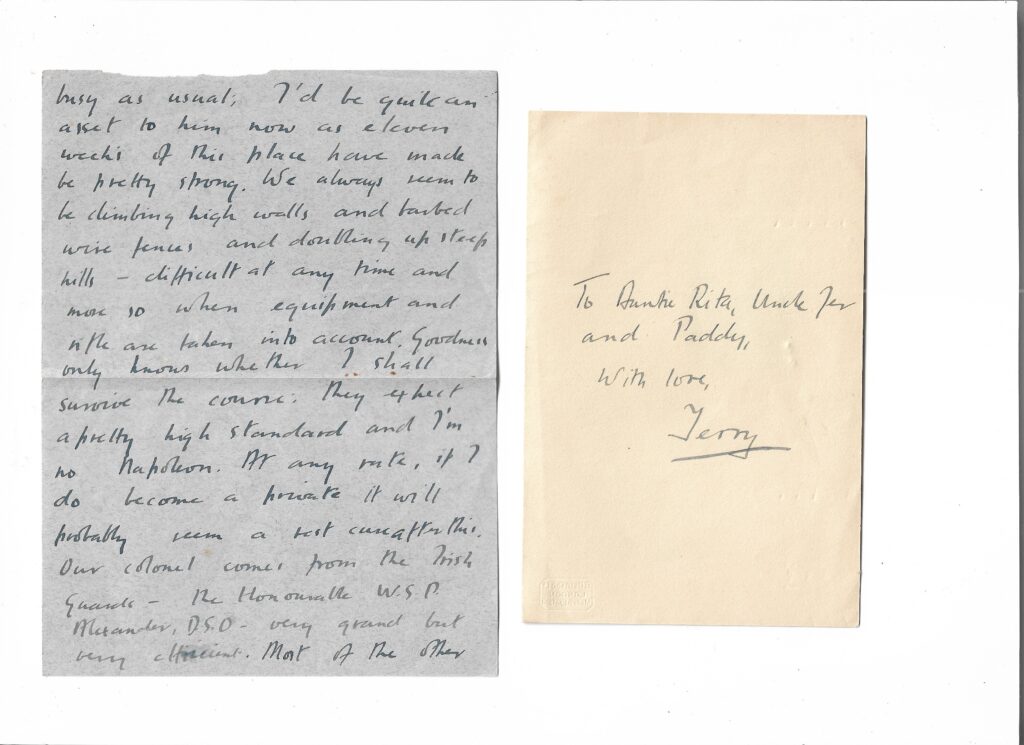 busy as usual; I'd be quite an
asset to him now as eleven
weeks of this place have made
be pretty strong. We always seem to
be climbing high walls and barbed
wire fences and doubling up steep
hills - difficult at any time and
more so when equipment and
rifle are taken into account. Goodness
only knows whether I shall
survive the course: they expect
a pretty high standard and I'm
no Napoleon. At any rate, if I
do become a private it will
probably seem a rest cure after this.
Our colonel comes from the Irish
Guards - the Honourable W.S.P.
Alexander, D.S.O - very grand but
very efficient. Most of the other
To Auntie Rita, Uncle Jer
and Paddy,
With love,
Terry